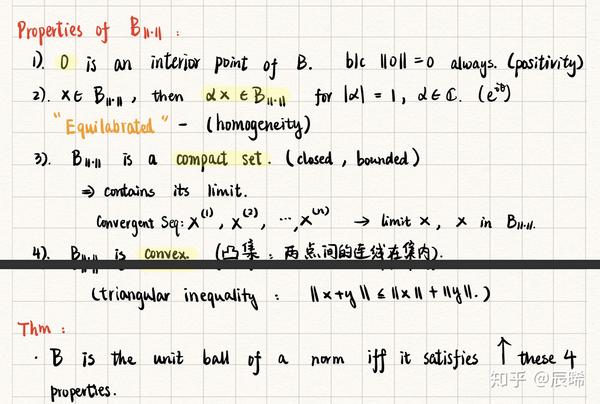 Properties of B‖·‖ :
1). 0 is an interior point of B. b/c ‖0‖ = 0 always. (positivity)
2). x ∈ B‖·‖ , then αx ∈ B‖·‖ for |α| = 1, α ∈ ℂ. (e^iθ)
"Equilabrated" - (homogeneity)
3). B‖·‖ is a compact set. (closed, bounded)
⇒ contains its limit.
Convergent Seq: X^(1), X^(2), ..., X^(n) → limit x, x in B‖·‖.
4). B‖·‖ is convex. (凸集: 两点间的连线在集内).
(triangular inequality : ‖x+y‖ ≤ ‖x‖ + ‖y‖.)
Thm :
· B is the unit ball of a norm iff it satisfies ↑ these 4
properties.
知乎 @辰晞